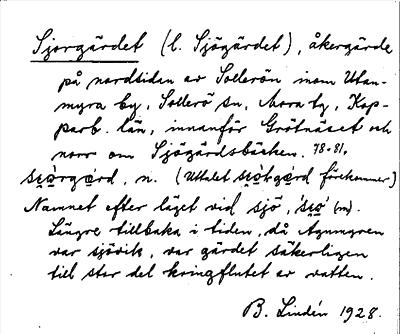 Sjorgärdet (l. Sjögärdet), åkergärde
på nordsidan av Sollerön inom Utan-
myra by, Sollerö sn, Mora tg, Kop-
parb. län, innanför Grötnäset och
norr om Sjögärdsbäcken. 78-81.
n. (Uttalet förekommer)
Namnet efter läget vid sjö, (m).
Längre tillbaka i tiden, då Agnmyren
var sjövik, var gärdet säkerligen
till stor del kringflutet av vatten.
B. Lindén 1928.